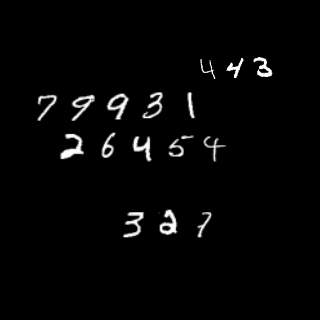 443
79931
26454
327